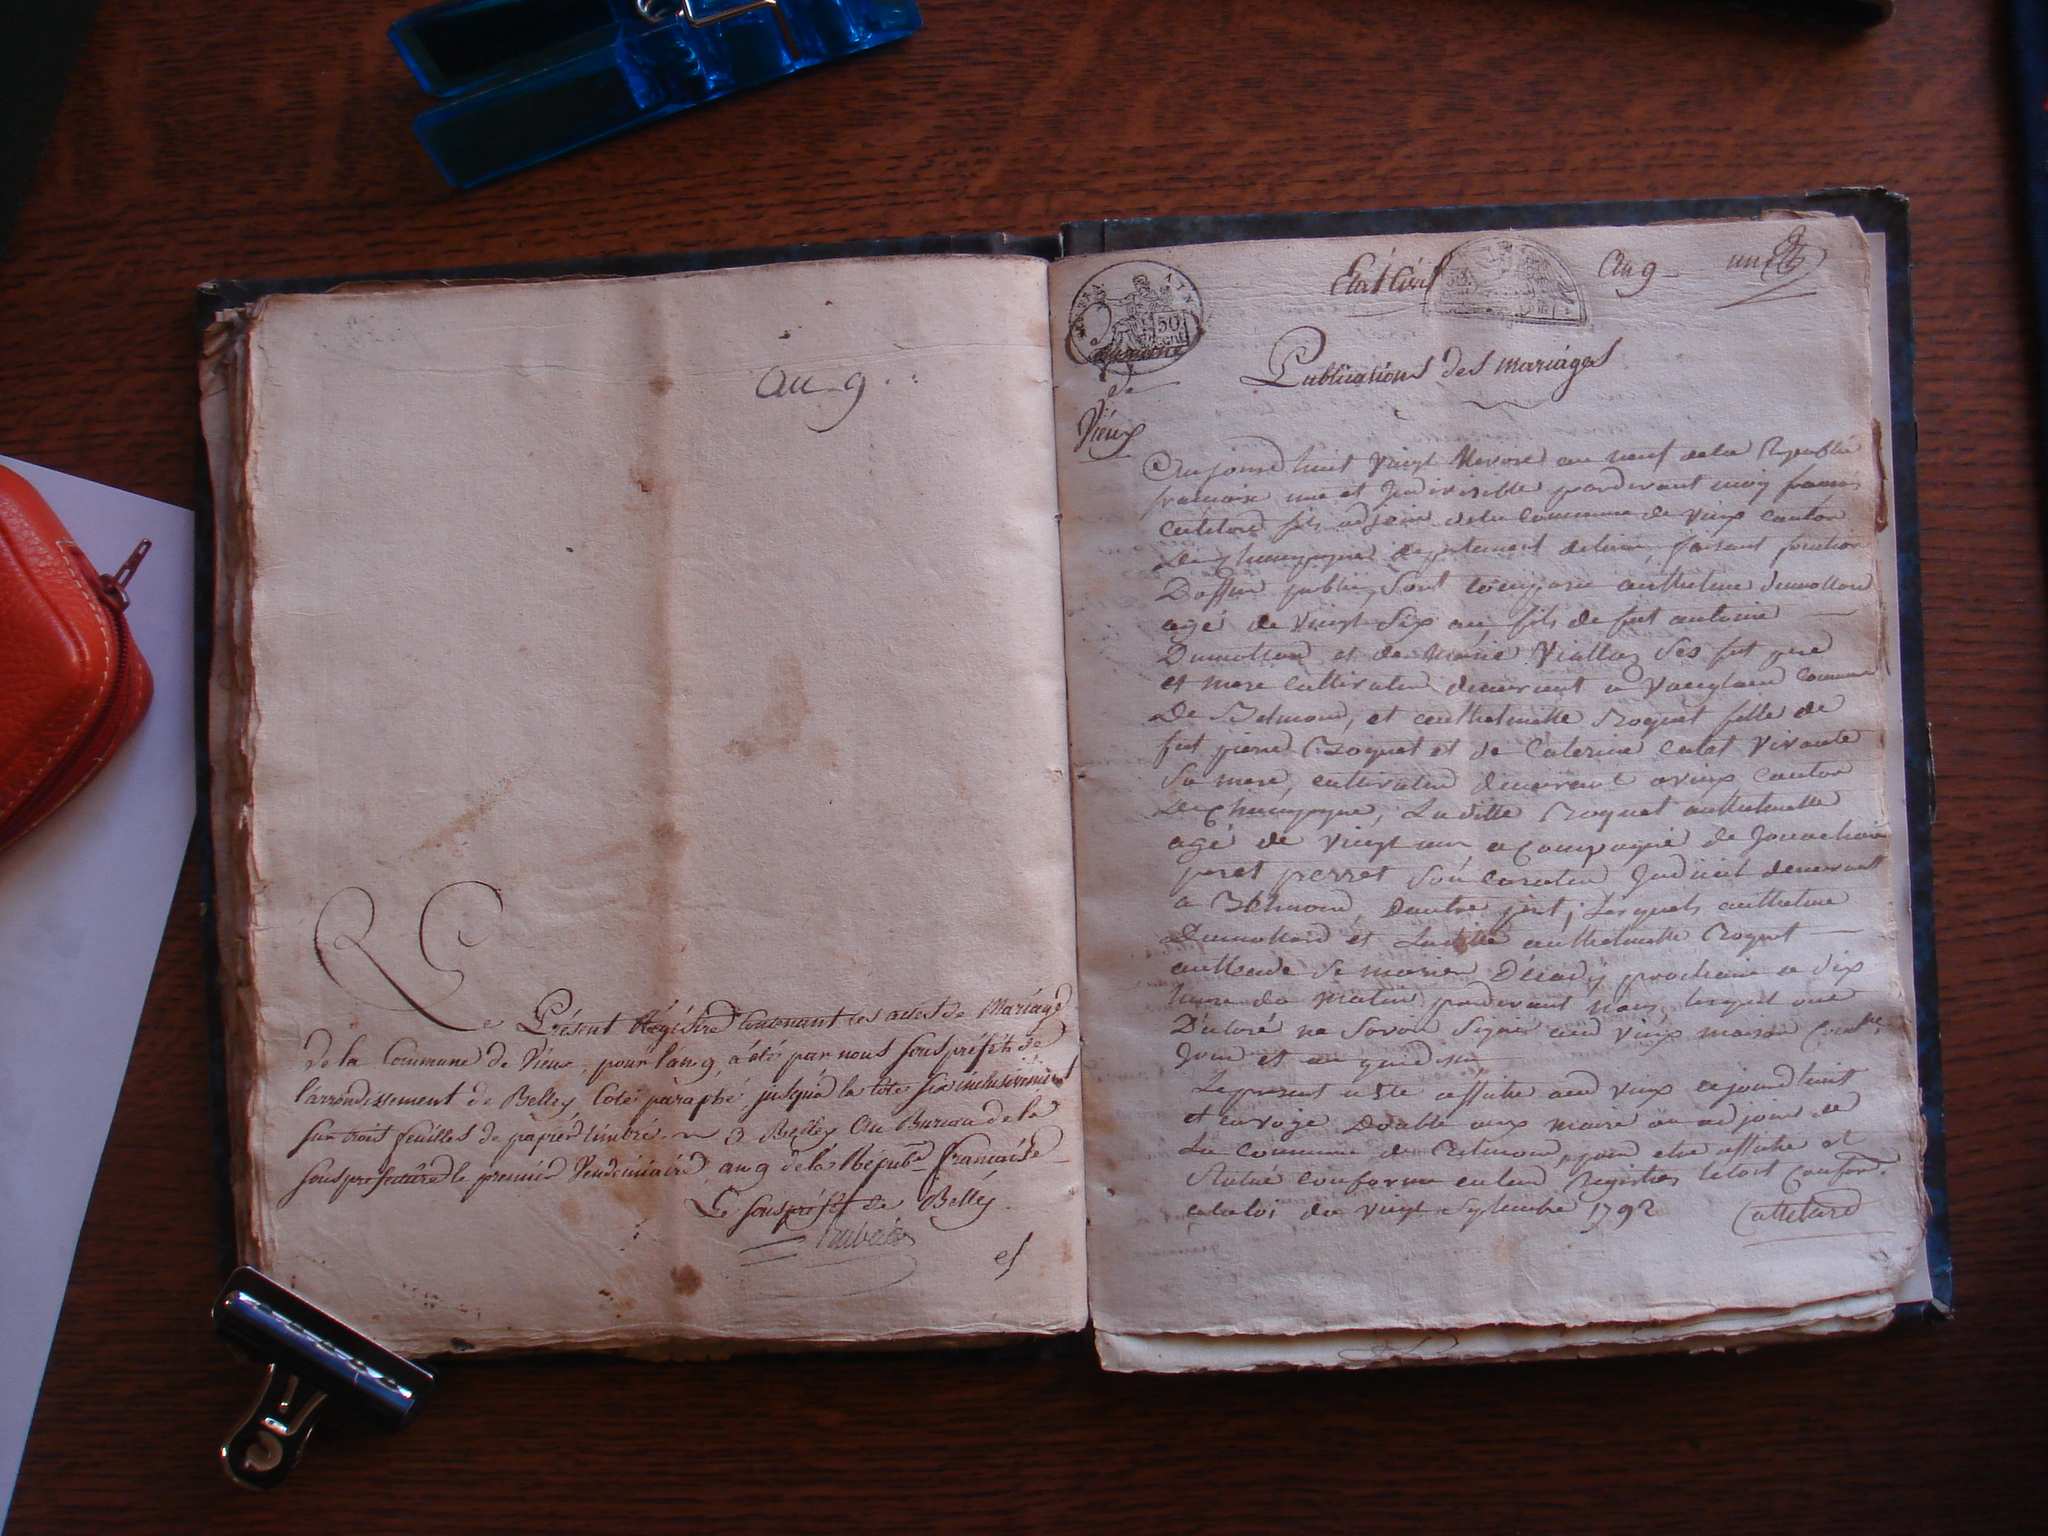 an 9
Le Présent Régistre Contenant les actes de Mariage
de la Commune de Vieu, pour l'an 9, a été par nous souspréfét de
l'arrondissement de Belley, Coté paraphé jusqu'à la Cote six inclusivement
sur trois feuilles de papier timbré. a Belley Au Bureau de la
sousprefecture le premier Vendémiaire, an 9 de la Répub.e française
Le souspréfét de Belley
et
Etat Civil
An 9
un
50
de
Vieux
Publications des mariages
Aujourd huit Vingt Nivose an neuf de la Republi
francaise une et Indivisible pardevant moy francois
adjoin de la Commune de Vieux canton
De Champagne departement delain faisant fonction
Doffice public, sont comparu anthelme dumollard
agé de Vingt Six an, fils de fut antoine
Dumollard et de Marie Viallaz ses fut pere
et mere Cultivateu demeurant a commune
De Belmond, et anthelmette Roguet fille de
fut pierre Roguet et de Caterine Catet Vivante
Sa mere, cultivateu demeurant a vieux canton
De Champagne, Laditte Roguet anthelmette
agé de Vingt un acompagné de
perret demeurant
a Belmond, Dautre part; Lesquels anthelme
Dumollard et Laditte anthelmette Roguet
de marier Décady prochain a dix
heure du Matin pardevant nous, lesquel one
Déclaré ne Savoir Signé aud Vieux maison Comune
Jour et an quid sus
Le present acte affiche aud Vieux cejourdhuit
et envoye Double aux maire ou adjoin de
La Commune de Belmond, pour etre affiche et
conforme en leur Registres le tout Conform.
a la loi du Vingt Septembre 1792 Cattelard